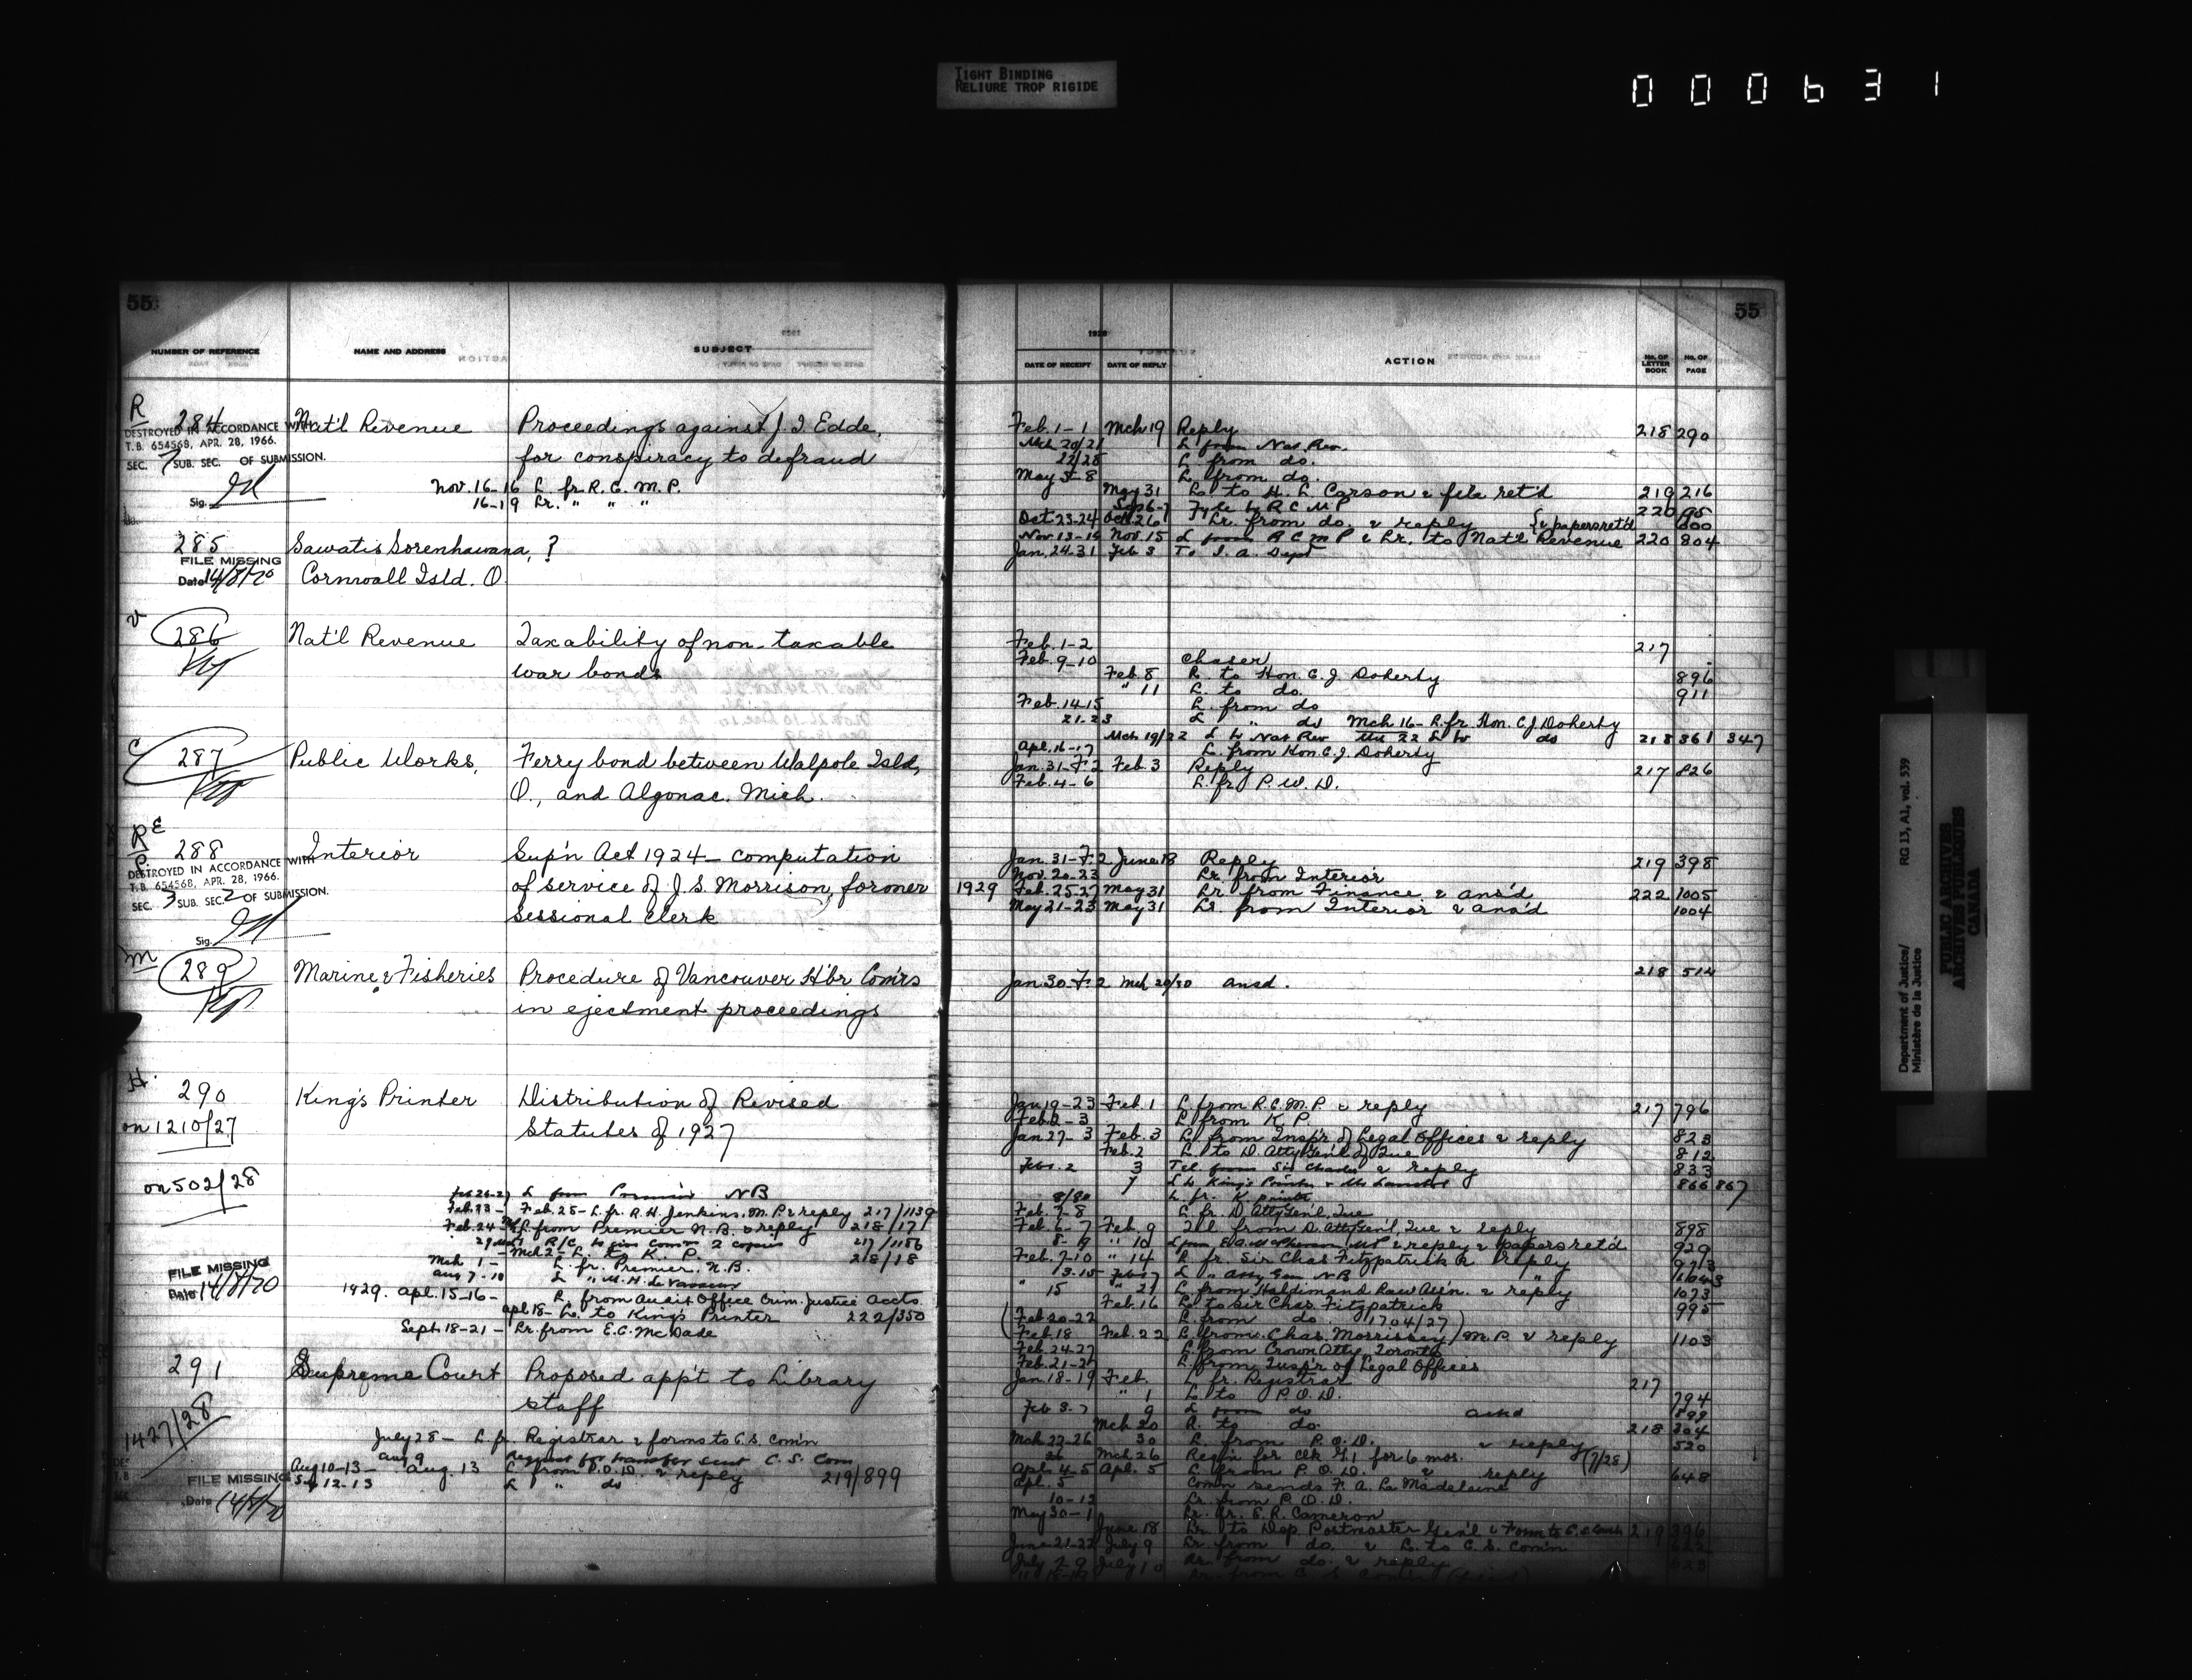 TIGHT BINDING
RELIURE TROP RIGIDE
000631
55
NUMBER OF REFERENCE NAME AND ADDRESS SUBJECT
R
284 Nat'l Revenue Proceedings against J. I. Edde,
for conspiracy to defraud
DESTROYED IN ACCORDANCE WITH
T.B. 654568, APR. 28, 1966.
SEC. 7 SUB. SEC. OF SUBMISSION.
Sig.
Nov. 16-16 L. fr. R.C.M.P.
16-19 Lr. " " "
285 Sawatis Sorenhawana, ?
Cornwall Isld. O.
FILE MISSING
Date 14/8/70
286 Nat'l Revenue Taxability of non-taxable
war bonds
C
287 Public Works, Ferry bond between Walpole Isld,
O., and Algonac. Mich.
288 Interior Sup'n Act 1924 - computation
of service of J. S. Morrison, former
sessional clerk
DESTROYED IN ACCORDANCE WITH
T.B. 654568, APR. 28, 1966.
SEC. 3 SUB. SEC. 2 OF SUBMISSION.
Sig.
M
289 Marine & Fisheries Procedure of Vancouver H'br Com'rs
in ejectment proceedings
H.
290 King's Printer Distribution of Revised
Statutes of 1927
on 1210/27
on 502/28
L from Premier NB
Feb. 25 - L. fr. R. H. Jenkins, M.P. & reply 217/1139
Feb. 24 L. from Premier N.B. & reply 218/17
217/1156
Mch 2 - L. to K. P. 218/18
Mch 1 - L. fr. Premier, N.B.
Aug 7-10
1929. Apl. 15-16 - L. from Audit Office Crim. Justice Accts.
Apl 18 - L. to King's Printer 222/350
Sept. 18-21 - Lr. from E.C. McDade
FILE MISSING
Date 14/8/70
291 Supreme Court Proposed app't to Library
staff
1427/28
July 28 - L. fr. Registrar & forms to C.S. Com'n
Aug 9 Request for transfer sent C.S. Com
Aug 10-13 - Aug. 13 L. from P.O.D. & reply 219/899
Sep 12-13 L " do
FILE MISSING
Date 14/8/70
55
1928
DATE OF RECEIPT DATE OF REPLY ACTION No. OF LETTER BOOK No. OF PAGE
Feb. 1-1 Mch 19 Reply 218 290
Mch 20/21 L from Nat Rev.
22/28 L from do.
May 5-8 L. from do.
May 31 L. to H. L. Carson & file ret'd 219 216
Sep 6-7 File to R C M P 220 95
Oct. 23-24 Oct. 26 Lr. from do. & reply & papers ret'd 600
Nov. 13-14 Nov. 15 L from R C M P & Lr. to Nat'l Revenue 220 804
Jan. 24.31 Feb 3 To I. A. Dept
Feb. 1-2 217
Feb. 9-10 Chaser
Feb. 8 L. to Hon. C. J. Doherty 896
" 11 L. to do. 911
Feb. 14-15 L. from do
21-23 L " do Mch 16 - L. fr. Hon. C. J. Doherty
Mch 19/22 L to Nat Rev Mch 22 L to do 218 361 347
Apl. 16-17 L. from Hon. C. J. Doherty
Jan. 31-F. 2 Feb. 3 Reply 217 826
Feb. 4-6 L. fr. P. W. D.
Jan. 31-F. 2 June 18 Reply 219 398
Nov. 20-23 Lr. from Interior
1929 Feb. 25-27 May 31 Lr from Finance & ans'd 222 1005
May 21-23 May 31 Lr. from Interior & ans'd 1004
Jan 30-F. 2 Mch 29/30 ansd. 218 514
Jan 19-23 Feb. 1 L. from R.C.M.P. & reply 217 796
Feb. 2-3 L from K P
Jan 27-3 Feb. 3 L. from Insp'r of Legal Offices & reply 823
Feb. 2 L. to D. Atty Gen'l of Que 812
Feb. 2 3 Tel. from Sir Charles & reply 833
7 L to King's Printer 866 867
L. fr. K. Printer
Feb. 7-8 L. fr. D. Atty Gen'l, Que
Feb. 6-7 Feb. 9 Tel. from D. Atty Gen'l, Que & reply 898
& reply & papers ret'd 929
Feb. 9-10 " 14 L. fr. Sir Chas Fitzpatrick & reply 973
13-15 L " Atty Gen NB
15 " 21 L. from Haldimand Law Ass'n. & reply 1073
Feb. 16 L. to Sir Chas. Fitzpatrick 995
Feb. 20-22 L. from do (1704/27)
Feb. 18 Feb. 22 L. from Chas. Morrissey, M.P. & reply 1103
Feb. 24-27 L. from Crown Atty, Toronto
Feb. 21-27 L. from Insp'r of Legal Offices
Jan. 18-19 Feb. L. fr. Registrar 217
" 1 L. to P. O. D. 794
Feb 8.9 9 L from do ansd 899
Mch 20 L. to do. 218 304
Mch 22-26 30 L. from P. O. D. & reply 520
Mch 26 Req'n for clk G. 1 for 6 mos. (7/28)
Apl. 4-5 Apl. 5 L. from P. O. D. & reply 648
Apl. 5 Com'n sends F. A. La Madelaine
10-12 Lr. from P. O. D.
May 30-1 Lr. fr. E. R. Cameron
June 18 Lr. to Dep. Postmaster Gen'l & Form to C.S. Com'n 219 396
June 21-22 July 9 Lr. from do. & L. to C. S. Com'n 622
July 7-9 July 10 Lr. from do. & reply 623
Department of Justice/ RG 13, A1, vol. 539
Ministère de la Justice
PUBLIC ARCHIVES
ARCHIVES PUBLIQUES
CANADA